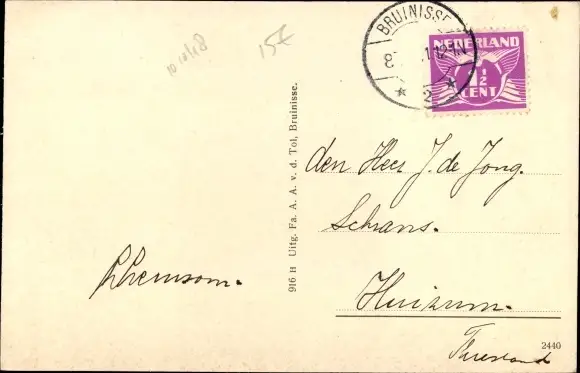 10 10/18
15€
BRUINISSE
8
1 12-1.N
2
NEDERLAND
1/2
CENT
916 H Uitg. Fa. A. A. v. d. Tol, Bruinisse.
den Heer J. de Jong.
Schans.
Huizum.
Friesland
2440